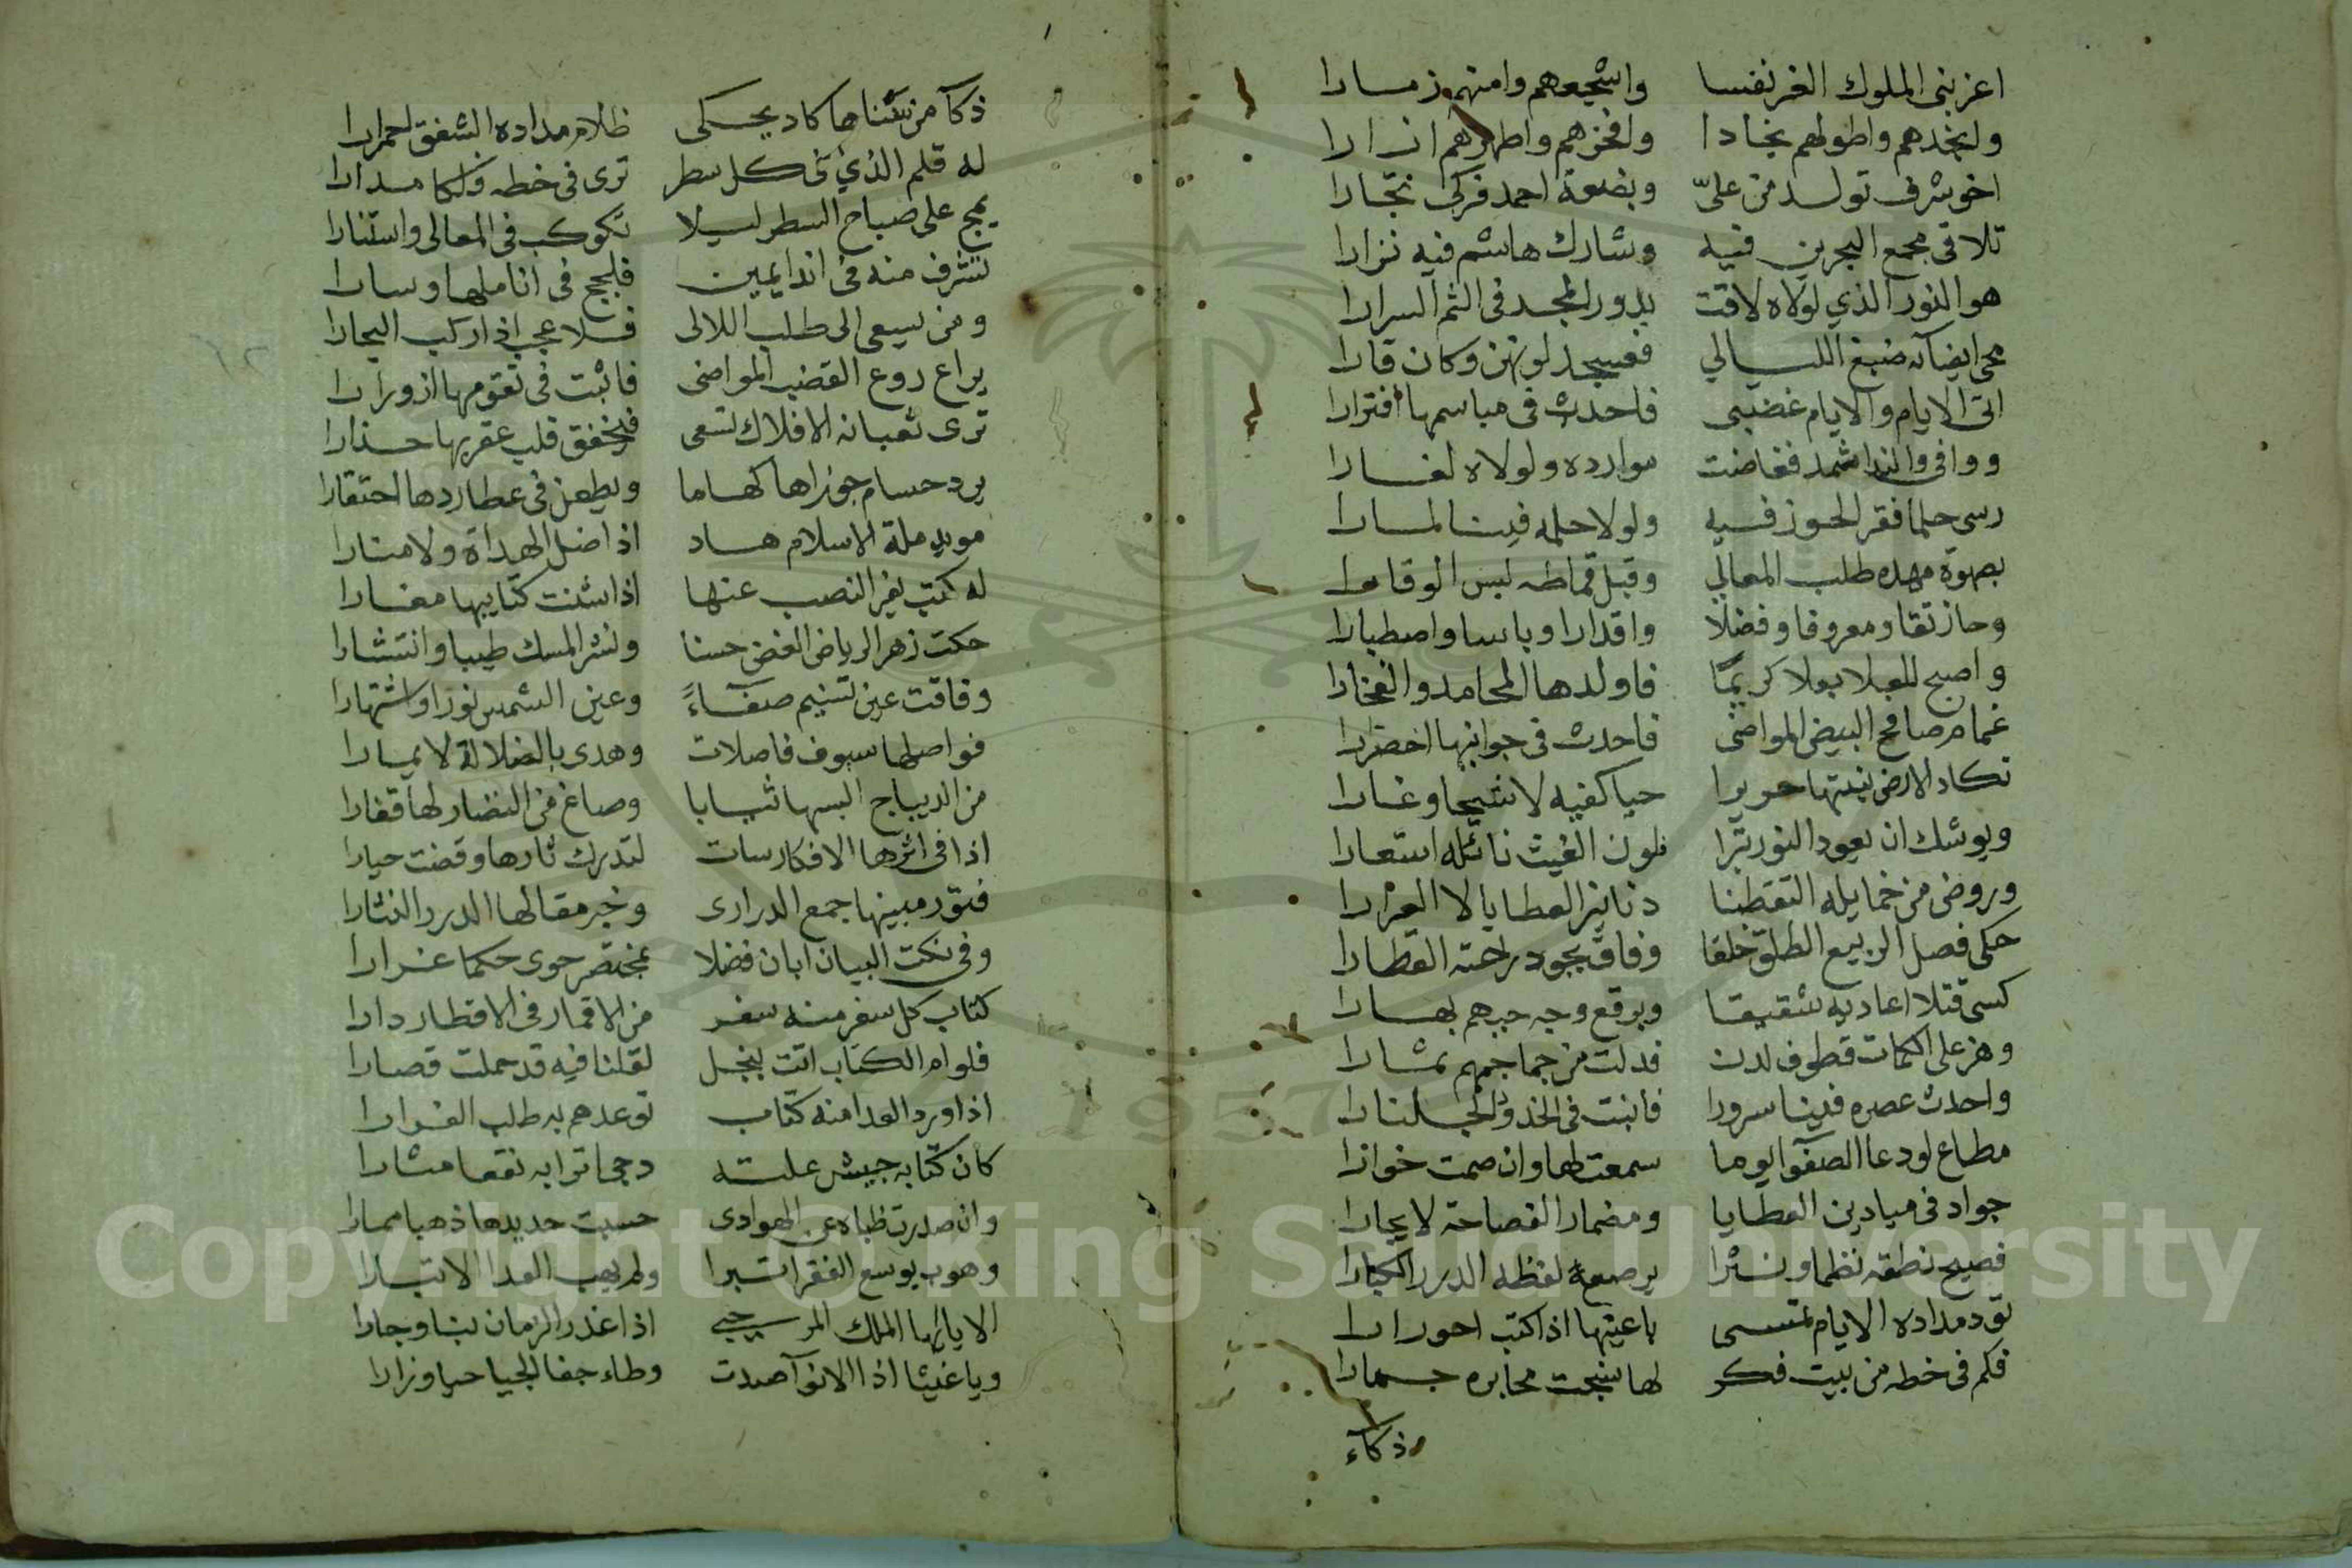 اعز بنى الملوك الغر نفسا واشجعهم وامنهم ذمارا
وانجدهم واطولهم نجادا وافخرهم واطهرهم ازارا
اخو شرف تولد من علىّ وبضعة احمد فزكى نجارا
تلاقى مجمع البحرين فيه وشارك هاشم فيه نزارا
هو النور الذي لولاه لاقت بدور المجد فى التم السرارا
محى ايضآئه ضبغ الليالي فعسجد لونهن وكان قارا
اتى الايام والايام غضبى فاحدث فى مباسمها افترارا
ووافى والندا ثمد ففاضت موارده ولولاه لغارا
رسى حلما فقر الحوز فيه ولولا حلمه فينا لمارا
بصهوة مهده طلب المعالي وقبل قماطه لبس الوقارا
وحاز تقا ومعروفا وفضلا واقدارا وباسا واصطبارا
واصبح للعلا بعلا كريمًا فاولدها المحامد والفخارا
غمام صافح البيض المواضى فاحدث فى جوانبها اخضرارا
تكاد الارض ينبتها حريرا حيا كفيه لا شيحا وغارا
ويوشك ان يعود النور تبرا فلون الغيث نائله استعارا
وروض من خمايله التقطنا دنانير العطايا لا العرارا
حكى فصل الربيع الطلق خلقا وفاق بجود راحته القطارا
كسى قتلا اعاديه شقيقا وبرقع وجه حيهم بهارا
وهز على الكمات قطوف لدن فدلت من جماجمهم ثمارا
واحدث عصره فينا سرورا فانبت فى الخدود الجلنارا
مطاع لو دعا الصفوآ يوما سمعت لها وان صمت خوارا
جواد فى ميادين العطايا ومضمار الفصاحة لا يجارا
فصيح نطقه نظما ونثرا يرصع لفظه الدرر الكبارا
تود مداده الايام تمسى باعينها اذا كتب احورارا
فكم فى خطه من بيت فكر لها نسجت محابره خمارا
ذكآء
ذكآ من سناها كاد يحكى ظلام مداده الشفق احمرارا
له قلم الذي فى كل سطر ترى فى خطه فلكا مدارا
يمج على صباح السطر ليلا تكوكب فى المعالى واستنارا
تشرف منه فى اندا يمين فلجج فى اناملها وسارا
ومن يسعى الى طلب اللالى فلا عجب اذا ركب البحارا
يراع روع القضب المواضى فاثبت فى تقومها ازورارا
ترى ثعبانه الافلاك تسعى فيخفق قلب عقربها حذارا
يرد حسام جوزاها كهاما ويطعن فى عطاردها احتقارا
مويد ملة الاسلام هاد اذا ضل الهداة ولا منارا
له كتب يفر النصب عنها اذا شنت كتايبها مغارا
حكت زهر الرياض الغض حسنا ونشر المسك طيبا وانتشارا
وفاقت عين تسنيم صفآءً وعين الشمس نورا واشتهارا
فواصلها سيوف فاصلات وهدى بالضلالة لا يمارا
من الديباج البسها ثيابا وصاغ من النضار لها قفارا
اذا فى اثرها الافكار سات لتدرك ثارها وقضت حيارا
فنور مبينها جمع الدرارى وخير مقالها الدرر النثارا
وفى نكت البيان ابان فضلا بمختصر حوى حكما غزارا
كتاب كل سفر منه سفر من الاقمار فى الاقطار دارا
فلو ام الكتاب اتت بنجل لقلنا فيه قد حملت قصارا
اذا ورد العدا منه كتاب توعدهم به طلب الفرارا
كان كتابه جيش علته دجى ترابه نقعا مثارا
وان صدرت ظباه عن الهوادى حسبت حديدها ذهبا ممارا
وهوب يوسع الفقرا تبرا ولم يهب العدا الا تبارا
الا يا ايها الملك المرجى اذا غدر الزمان بنا وجارا
ويا غيثا اذا الانوآ صدت وطاء جفا الحيا حيا وزارا